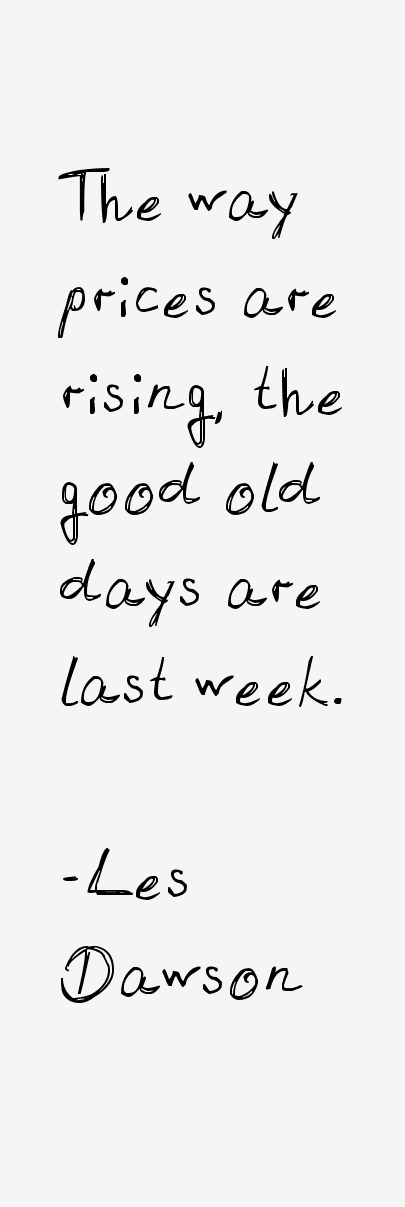 The way
prices are
rising, the
good old
days are
last week.
-Les
Dawson